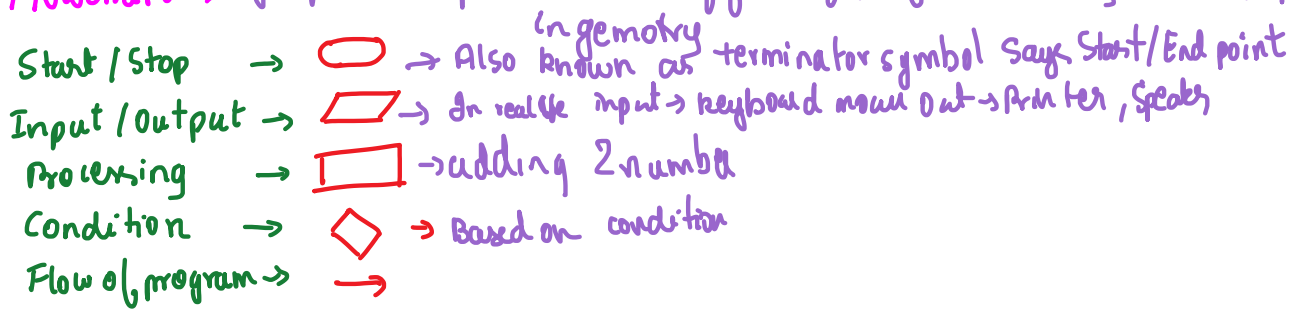 Start / Stop → → Also known as terminator symbol says Start/End point
In gemotry
Input / Output → → In real life input → keyboard mouse out → Printer, Speaks
Processing → → adding 2 numba
Condition → → Based on condition
Flow of program → →